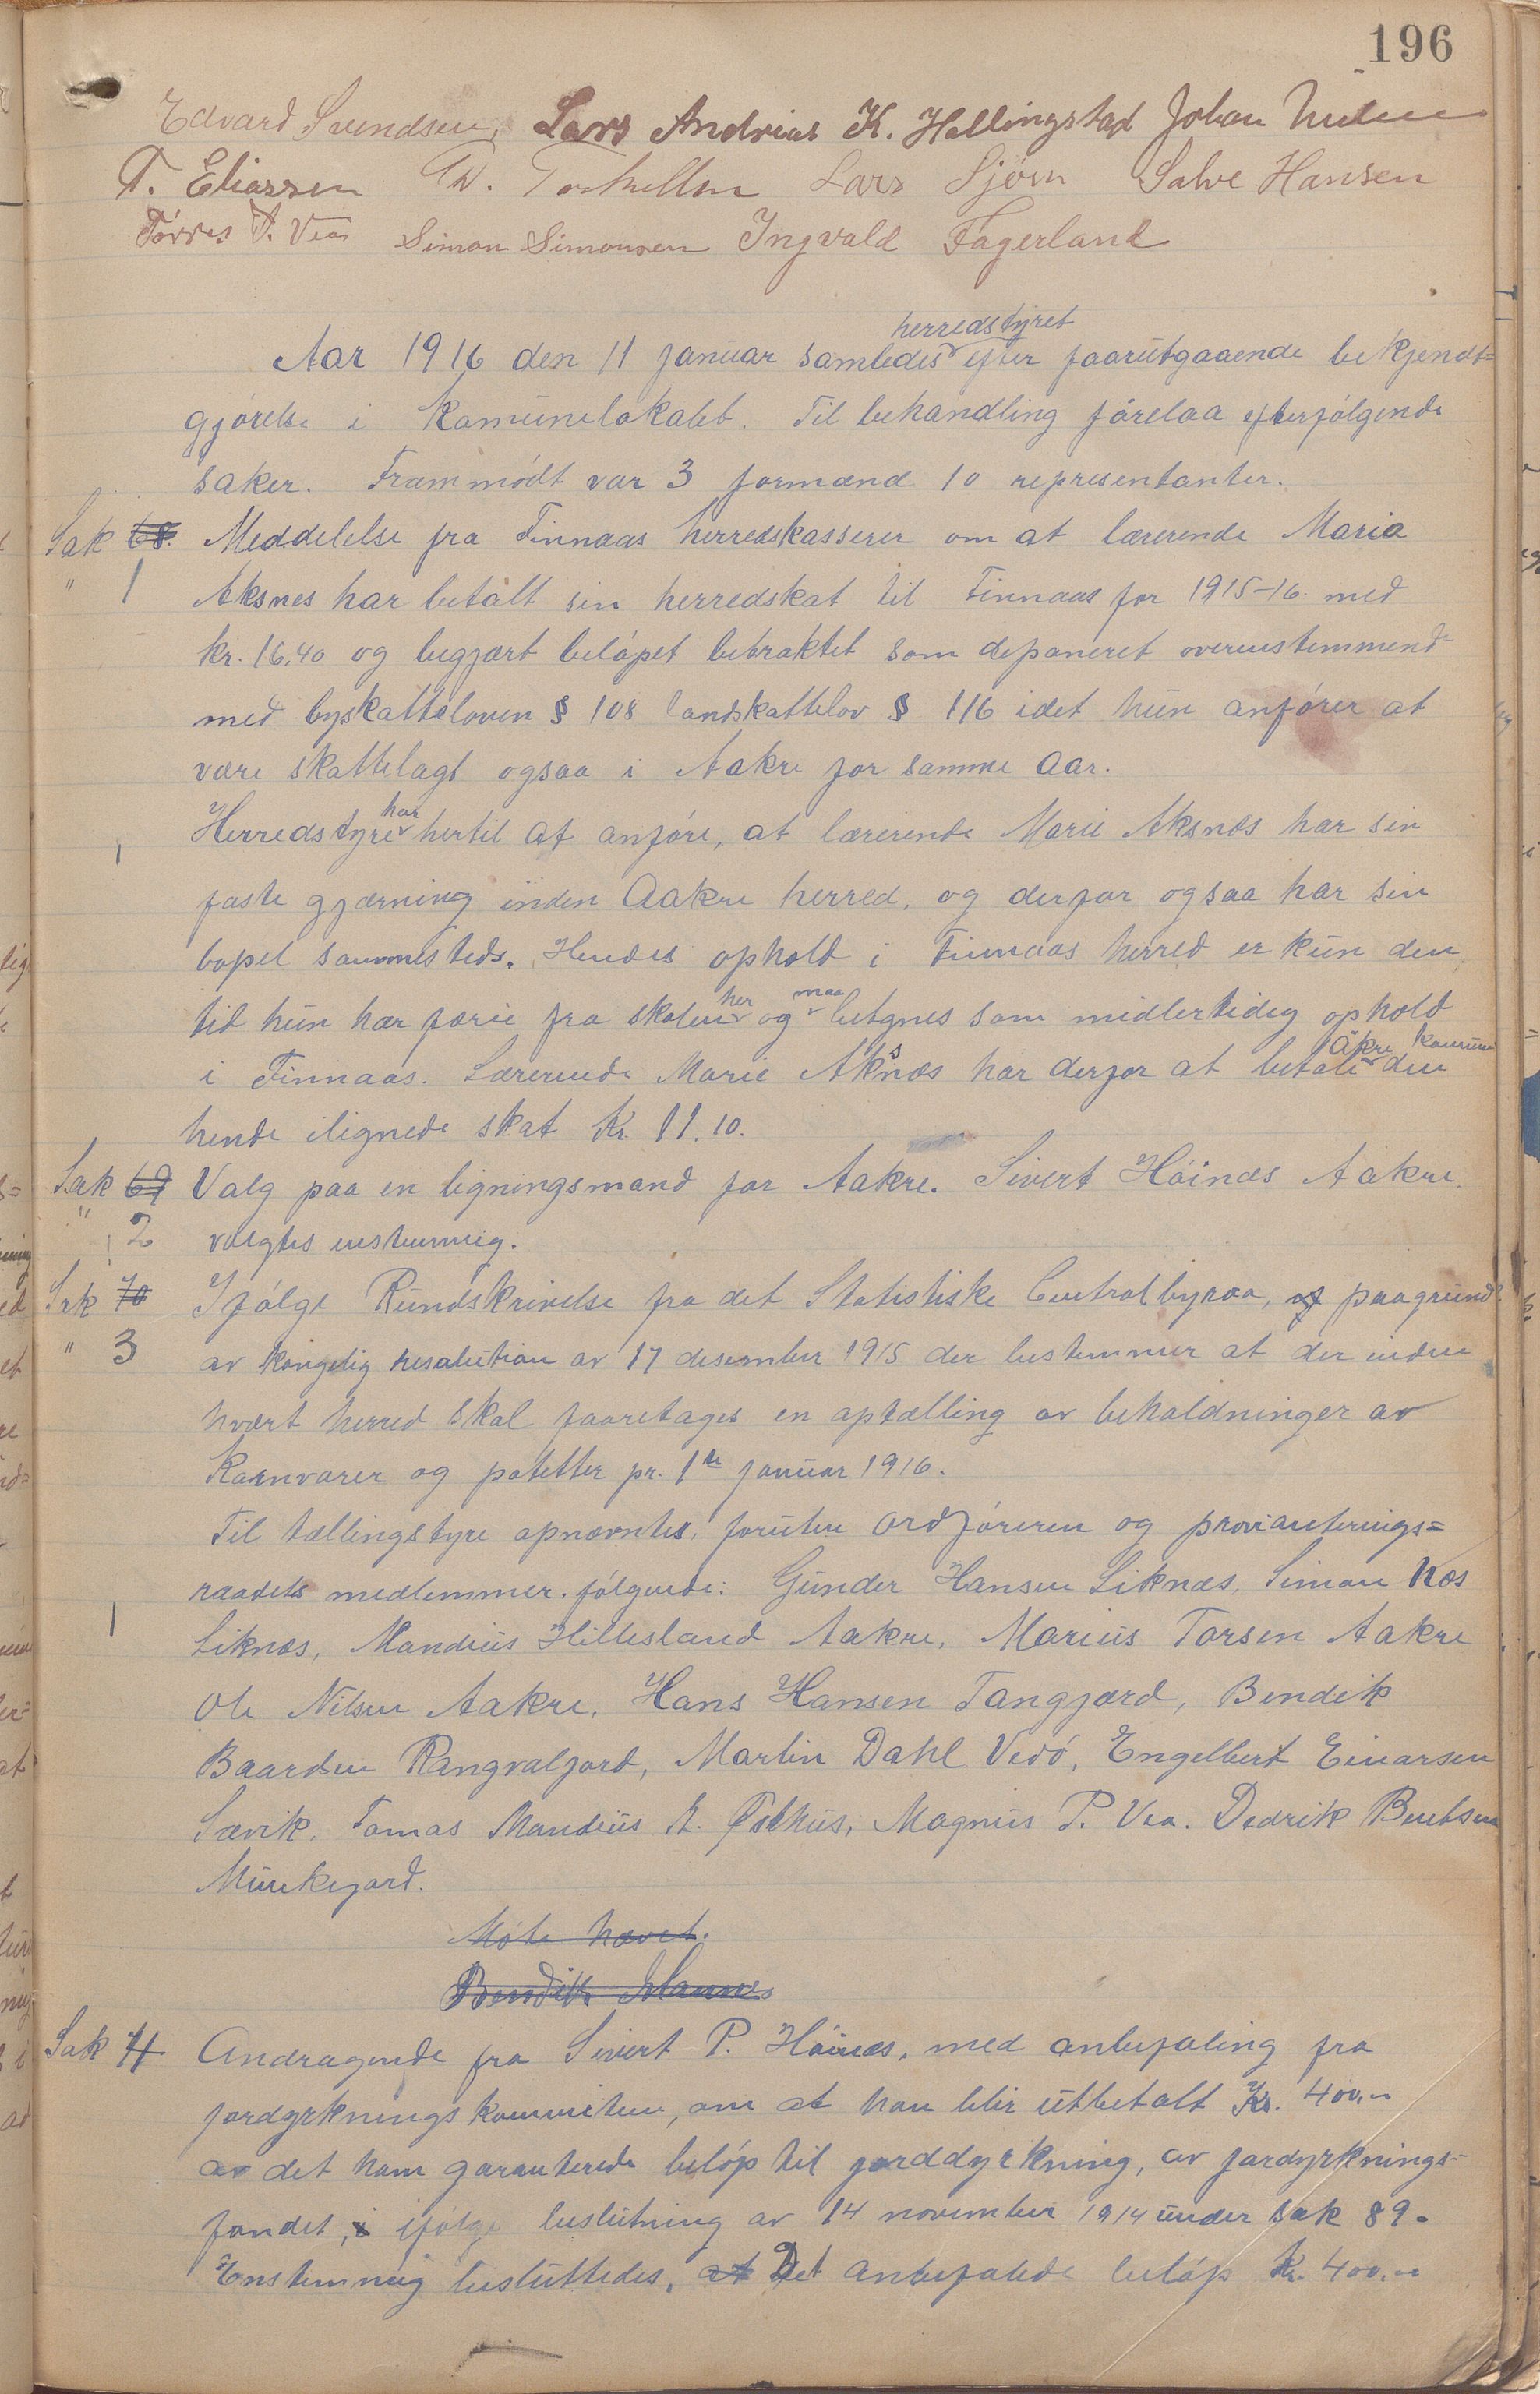 196
Edvard Svendsen, Lars Andreas K. Hallingstad Johan
T. Eliassen Lars Sjøen Salve Hansen
Tørres T. Vea Simon Simonsen Ingvald Fagerland
herredstyret
Aar 1916 den 11 januar samledes efter faarutgaaende bekjendt=
gjørelse i Kamunelokalet. Til behandling forelaa efterfølgende
saker. Frammødt var 3 formænd 10 representanter.
Sak 68. Meddelelse fra Finnaas herredskasserer om at lærerende Maria
" 1 Aksnes har betalt sin herredskat til Finnaas for 1915-16 med
kr. 16,40 og begjært beløpet betraktet som deponeret overenstemmende
med byskatteloven § 108 landskattelov § 116 idet hun anfører at
være skattelagt ogsaa i Aakre for samme Aar.
har
Herredstyre hertil at anføre, at lærerende Marie Aksnes har sin
faste gjærning inden Aakre herred, og derfor ogsaa har sin
bopel sammesteds. Hendes ophold i Finnaas herred er kun den
her maa
tid hun har færie fra skolen og betgnes som midlertidig ophold
s Åkre kamune
i Finnaas. Lærerende Marie Aknæs har derfor at betale den
hende ilignede skat Kr. 11.10.
Sak 69 Valg paa en ligningsmand for Aakre. Sivert Høines Aakre.
" 2 valgtes enstemmig.
Sak 70 Ifølge Rundskrivelse fra det Statistiske Centralbyraa, af paagrund
" 3 av kongelig resalution av 17 desember 1915 der bestemmer at der inden
hvært herred skal faaretages en aptælling av behaldninger av
Kornvarer og poteter pr. 1ste januar 1916.
Til tællingstyre apnævntes, foruten ordføreren og provianterings=
raadets medlemmer. følgende: Gunder Hansen Liknæs, Simon Næs
Liknæs, Mandius Hillesland Aakre, Marius Torsen Aakre
Ole Nilsen Aakre, Hans Hansen Tangjærd, Bendik
Baardsen Rangvaljord, Martin Dahl Vedø, Engelbert Einarsen
Sævik, Tomas Mandius A. Østhus, Magnus P. Vea. Dedrik Bentsen
Munkejord.
Møte hævet.
Bendik Mannes
Sak 71 Andragende fra Sivert P. Høines, med anbefaling fra
jordyrknings kommiteen, om at han blir utbetalt Kr. 400,-
av det ham garanterede beløp til jorddyrkning, av jordyrknings-
fondet, i ifølge beslutning av 14 november 1914 under sak 89.
Enstemmig besluttedes, at Det anbefalede beløp Kr. 400,-